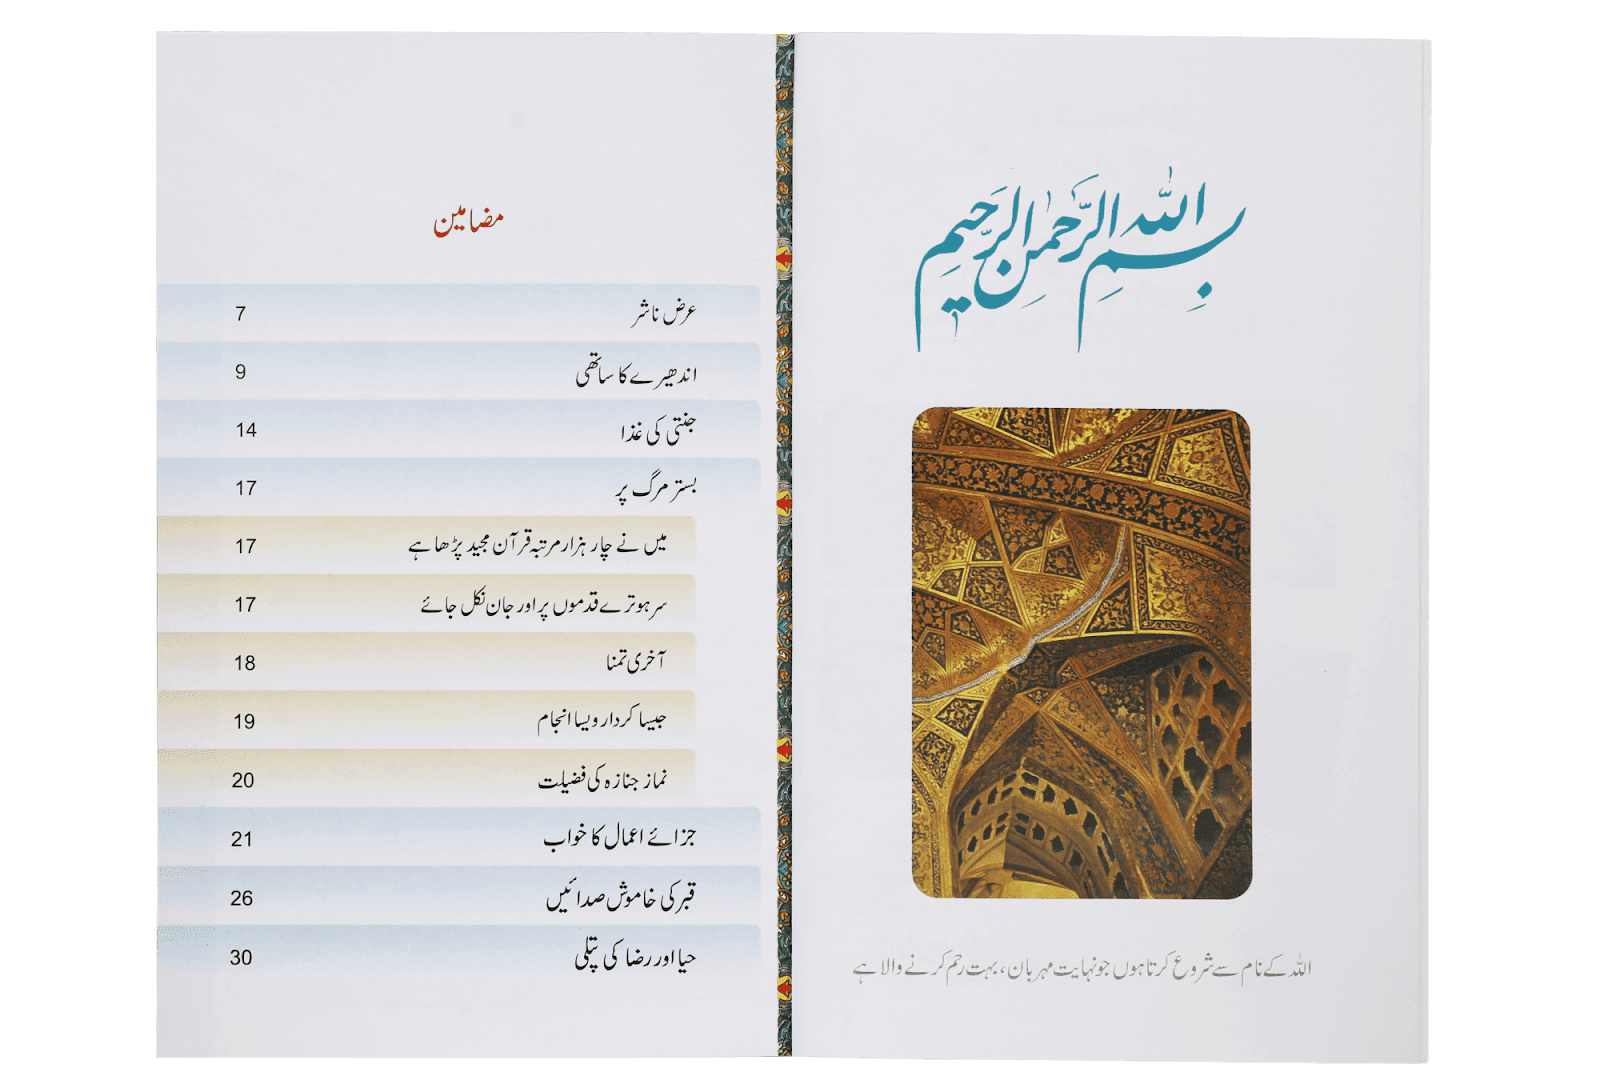 بِسْمِ اللهِ الرَّحْمٰنِ الرَّحِيْمِ
اللہ کے نام سے شروع کرتا ہوں جو نہایت مہربان، بہت رحم کرنے والا ہے
مضامین
عرض ناشر 7
اندھیرے کا ساتھی 9
جنتی کی غذا 14
بستر مرگ پر 17
میں نے چار ہزار مرتبہ قرآن مجید پڑھا ہے 17
سر ہو ترے قدموں پر اور جان نکل جائے 17
آخری تمنا 18
جیسا کردار ویسا انجام 19
نماز جنازہ کی فضیلت 20
جزائے اعمال کا خواب 21
قبر کی خاموش صدائیں 26
حیا اور رضا کی پتلی 30